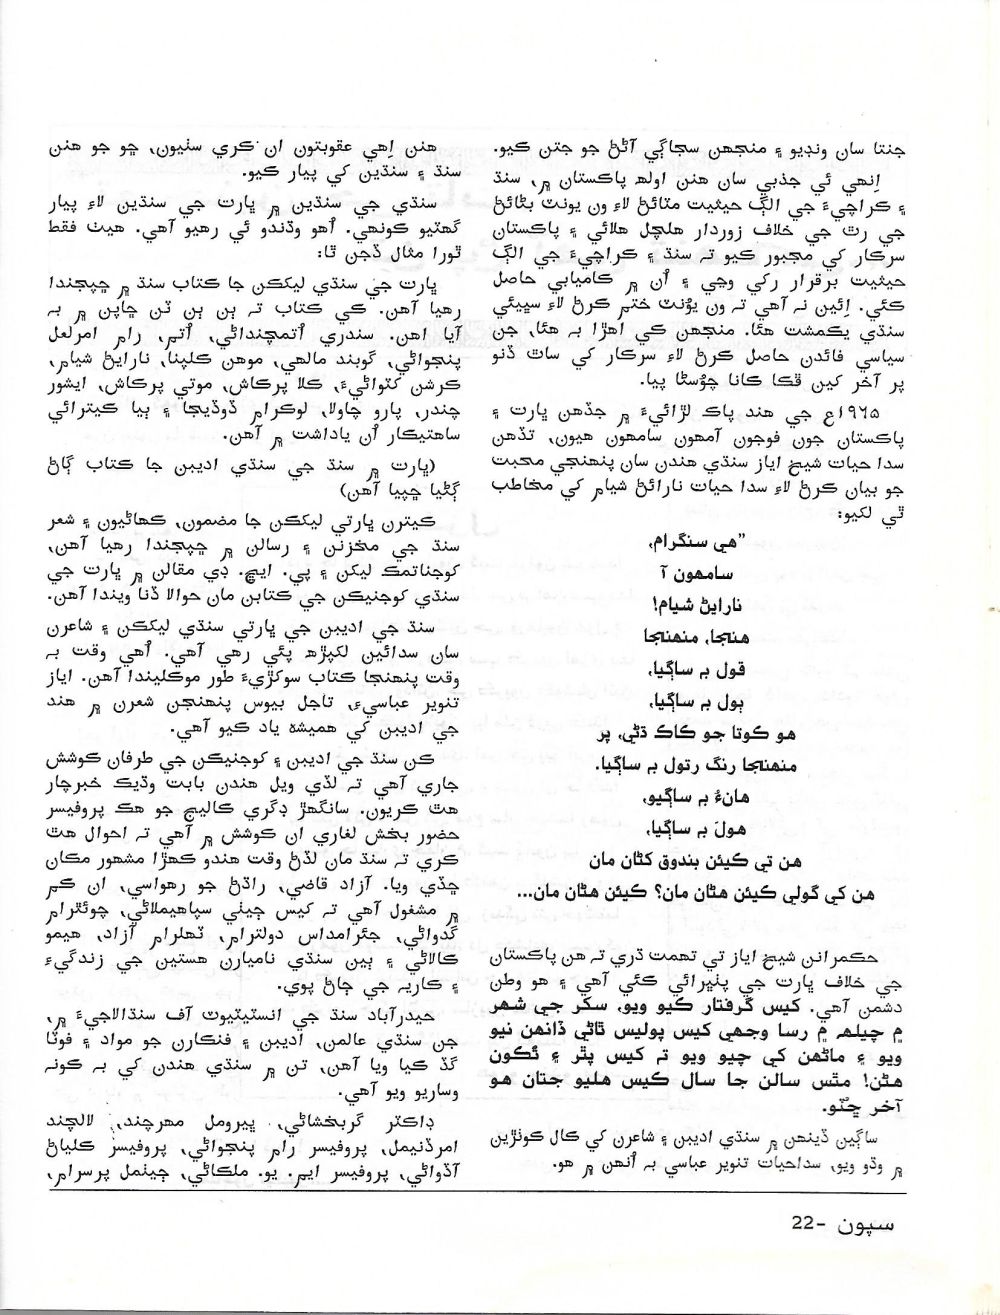 جنتا سان ونڊيو ۽ منجهن سجاڳي آڻڻ جو جتن ڪيو.
اِنهي ئي جذبي سان هنن اولهه پاڪستان ۾، سنڌ
۽ ڪراچيءَ جي الڳ حيثيت مٽائڻ لاءِ ون يونٽ بڻائڻ
جي رٿ جي خلاف زوردار هلچل هلائي ۽ پاڪستان
سرڪار کي مجبور ڪيو تہ سنڌ ۽ ڪراچيءَ جي الڳ
حيثيت برقرار رکي وڃي ۽ اُن ۾ ڪاميابي حاصل
ڪئي. اِئين نہ آهي تہ ون يُونٽ ختم ڪرڻ لاءِ سڀيئي
سنڌي يڪمشت هئا. منجهن کي اهڙا بہ هئا، جن
سياسي فائدن حاصل ڪرڻ لاءِ سرڪار کي ساٿ ڏنو
پر آخر ڪين ڦڪا ڪانا چُوسڻا پيا.
١٩٦٥ع جي هند پاڪ لڙائيءَ ۾ جڏهن ڀارت ۽
پاڪستان جون فوجون آمهون سامهون هيون، تڏهن
سدا حيات شيخ اياز سنڌي هندن سان پنهنجي محبت
جو بيان ڪرڻ لاءِ سدا حيات نارائڻ شيام کي مخاطب
ٿي لکيو:
"هي سنگرام،
سامهون آ
نارايڻ شيام!
هنجا، منهنجا
قول بہ ساڳيا،
ٻول بہ ساڳيا،
هو ڪوتا جو ڪاڪ ڌڻي، پر
منهنجا رنگ رتول بہ ساڳيا.
هانءُ بہ ساڳيو،
هولَ بہ ساڳيا،
هن تي ڪيئن بندوق کڻان مان
هن کي گولي ڪيئن هڻان مان؟ ڪيئن هڻان مان...
حڪمرانن شيخ اياز تي تهمت ڌري تہ هن پاڪستان
جي خلاف ڀارت جي پٺيرائي ڪئي آهي ۽ هو وطن
دشمن آهي. کيس گرفتار ڪيو ويو، سکر جي شهر
۾ چيلهہ ۾ رسا وجهي کيس پوليس ٿاڻي ڏانهن نيو
ويو ۽ ماڻهن کي چيو ويو تہ کيس پٿر ۽ ٺڪون
هڻن! مٿس سالن جا سال ڪيس هليو جتان هو
آخر ڇٽو.
ساڳين ڏينهن ۾ سنڌي اديبن ۽ شاعرن کي کال ڪوٺڙين
۾ وڌو ويو، سداحيات تنوير عباسي بہ اُنهن ۾ هو.
هنن اِهي عقوبتون ان ڪري سٺيون، ڇو جو هنن
سنڌ ۽ سنڌين کي پيار ڪيو.
سنڌي جي سنڌين ۾ ڀارت جي سنڌين لاءِ پيار
گهٽيو ڪونهي. اُهو وڌندو ئي رهيو آهي. هيٺ فقط
ٿورا مثال ڏجن ٿا:
ڀارت جي سنڌي ليکڪن جا ڪتاب سنڌ ۾ ڇپجندا
رهيا آهن. ڪي ڪتاب تہ ٻن ٻن ٽن ڇاپن ۾ بہ
آيا اهن. سندري اُتمچنداڻي، اُتم، رام امرلعل
پنجواڻي، گوبند مالهي، موهن ڪلپنا، نارايڻ شيام،
ڪرشن کٽواڻيءَ، ڪلا پرڪاش، موتي پرڪاش، ايشور
چندر، پارو چاولا، لوڪرام ڏوڏيجا ۽ ٻيا ڪيترائي
ساهتيڪار اُن ياداشت ۾ آهن.
(ڀارت ۾ سنڌ جي سنڌي اديبن جا ڪتاب ڳاڻ
ڳڻيا ڇپيا آهن)
ڪيترن ڀارتي ليکڪن جا مضمون، ڪهاڻيون ۽ شعر
سنڌ جي مخزنن ۽ رسالن ۾ ڇپجندا رهيا آهن،
کوجناتمڪ ليکن ۽ پي. ايڇ. ڊي مقالن ۾ ڀارت جي
سنڌي کوجنيڪن جي ڪتابن مان حوالا ڏنا ويندا آهن.
سنڌ جي اديبن جي ڀارتي سنڌي ليکڪن ۽ شاعرن
سان سدائين لکپڙهہ پئي رهي آهي. اُهي وقت بہ
وقت پنهنجا ڪتاب سوکڙيءَ طور موڪليندا آهن. اياز
تنوير عباسيءَ، تاجل بيوس پنهنجن شعرن ۾ هند
جي اديبن کي هميشہ ياد ڪيو آهي.
ڪن سنڌ جي اديبن ۽ کوجنيڪن جي طرفان ڪوشش
جاري آهي تہ لڏي ويل هندن بابت وڌيڪ خبرچار
هٿ ڪريون. سانگهڙ ڊگري ڪاليج جو هڪ پروفيسر
حضور بخش لغاري ان ڪوشش ۾ آهي تہ احوال هٿ
ڪري تہ سنڌ مان لڏڻ وقت هندو ڪهڙا مشهور مڪان
ڇڏي ويا. آزاد قاضي، راڌڻ جو رهواسي، ان ڪم
۾ مشغول آهي تہ کيس جيٺي سپاهيملاڻي، چوئٿرام
گدواڻي، جئرامداس دولترام، ٽهلرام آزاد، هيمو
ڪالاڻي ۽ ٻين سنڌي ناميارن هستين جي زندگيءَ
۽ ڪاريہ جي ڄاڻ پوي.
حيدرآباد سنڌ جي انسٽيٽيوٽ آف سنڌالاجيءَ ۾،
جن سنڌي عالمن، اديبن ۽ فنڪارن جو مواد ۽ فوٽا
گڏ ڪيا ويا آهن، تن ۾ سنڌي هندن کي بہ ڪونہ
وساريو ويو آهي.
ڊاڪٽر گربخشاڻي، ڀيرومل مهرچند، لالچند
امرڏنيمل، پروفيسر رام پنجواڻي، پروفيسر ڪلياڻ
آڏواڻي، پروفيسر ايم. يو. ملڪاڻي، جيٺمل پرسرام،
سپون -22